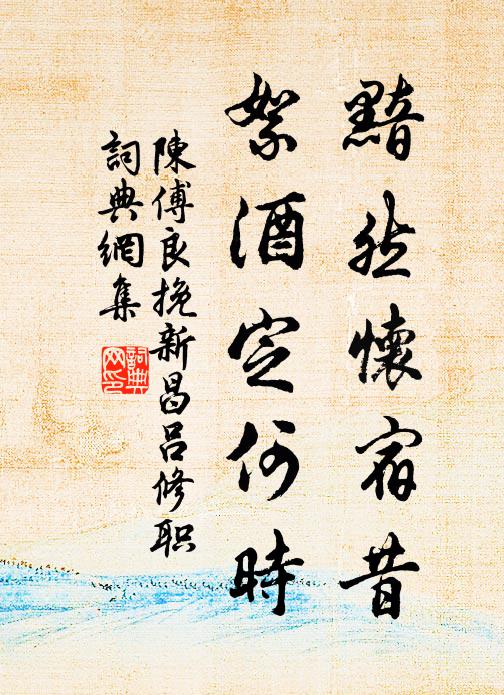 黯然懷宿昔
絮酒定何時
陳傅良挽新昌呂修职
詞典網集
詞典
网印